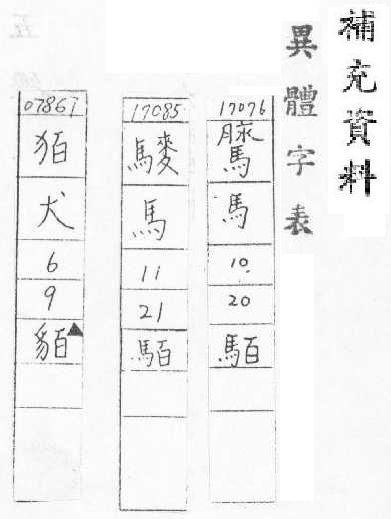 補充資料
異體字表
17076
馬
10
20
17085
馬
11
21
07861
犬
6
9
貊▲